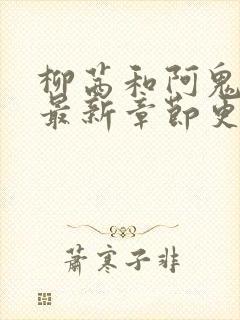 柳茜和阿鬼
最新章节史
萧寒子非